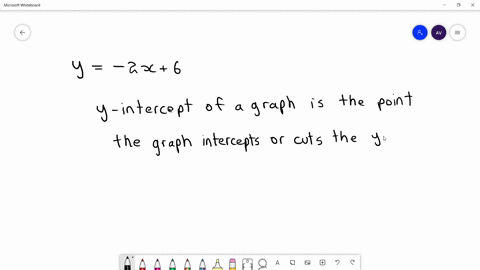 Microsoft Whiteboard
AV
y = -2x+6
y-intercept of a graph is the point
the graph intercepts or cuts the y